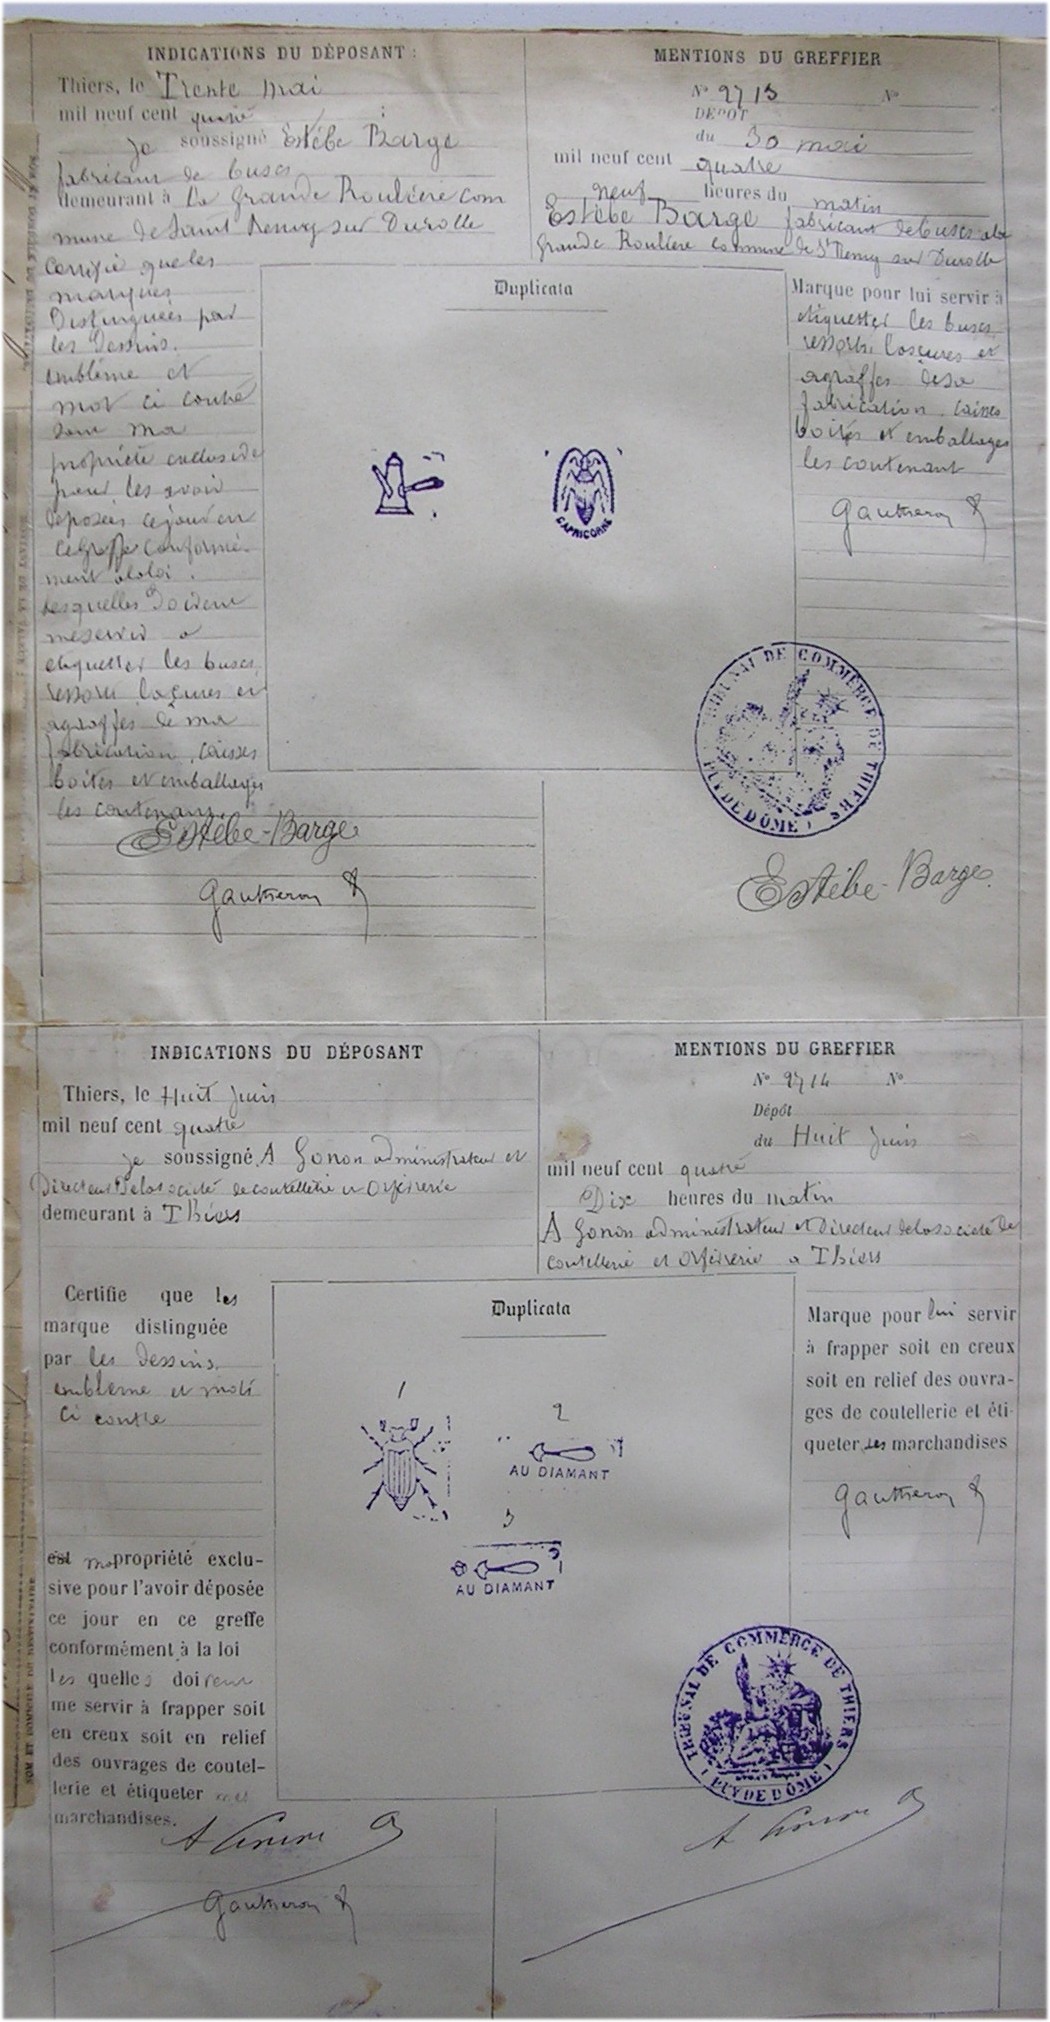 INDICATIONS DU DÉPOSANT :
Thiers, le Trente mai
mil neuf cent quatre
Je soussigné Estèbe Barge
fabricant de buscs
demeurant à La Grande Roulière com
mune de Saint Remy sur Durolle
certifie que les
marques
Distinguées par
les Dessins.
emblème et
mot ci contre
sont ma
propriété exclusive
pour les avoir
déposées ce jour en
ce Greffe conformé-
ment à la loi.
Lesquelles doivent
me servir à
étiqueter les buscs,
ressorts laçures et
agraffes de ma
fabrication, caisses
boites et emballages
les contenant.
Estèbe-Barge
Gautheron
MENTIONS DU GREFFIER
N° 2713 N°
DÉPOT
du 30 mai
mil neuf cent quatre
neuf heures du matin
Estèbe Barge fabricant de buscs à la
grande Roulière commune de St Remy sur Durolle
Duplicata
CAPRICORNE
Marque pour lui servir à
étiquetter les buscs
ressorts, lacures et
agraffes de sa
fabrication. caisses
boites et emballages
les contenant
Gautheron
TRIBUNAL DE COMMERCE DE THIERS
( PUY DE DÔME )
Estèbe-Barge.
INDICATIONS DU DÉPOSANT
Thiers, le Huit Juin
mil neuf cent quatre
Je soussigné, A Gonon administrateur et
Directeur De la société de coutellerie et Orfèvrerie
demeurant à Thiers
Certifie que les
marque distinguée
par les Dessins,
emblème et mots
ci contre
est ma propriété exclu-
sive pour l'avoir déposée
ce jour en ce greffe
conformément à la loi
les quelles doivent
me servir à frapper soit
en creux soit en relief
des ouvrages de coutel-
lerie et étiqueter mes
marchandises.
A Gonon
Gautheron
MENTIONS DU GREFFIER
N° 2714 N°
Dépôt
du Huit Juin
mil neuf cent quatre
Dix heures du matin
A Gonon administrateur et Directeur de la société de
coutellerie et Orfèvrerie à Thiers
Duplicata
1
2
AU DIAMANT
3
AU DIAMANT
Marque pour lui servir
à frapper soit en creux
soit en relief des ouvra-
ges de coutellerie et éti-
queter ses marchandises
Gautheron
TRIBUNAL DE COMMERCE DE THIERS
( PUY DE DÔME )
A Gonon